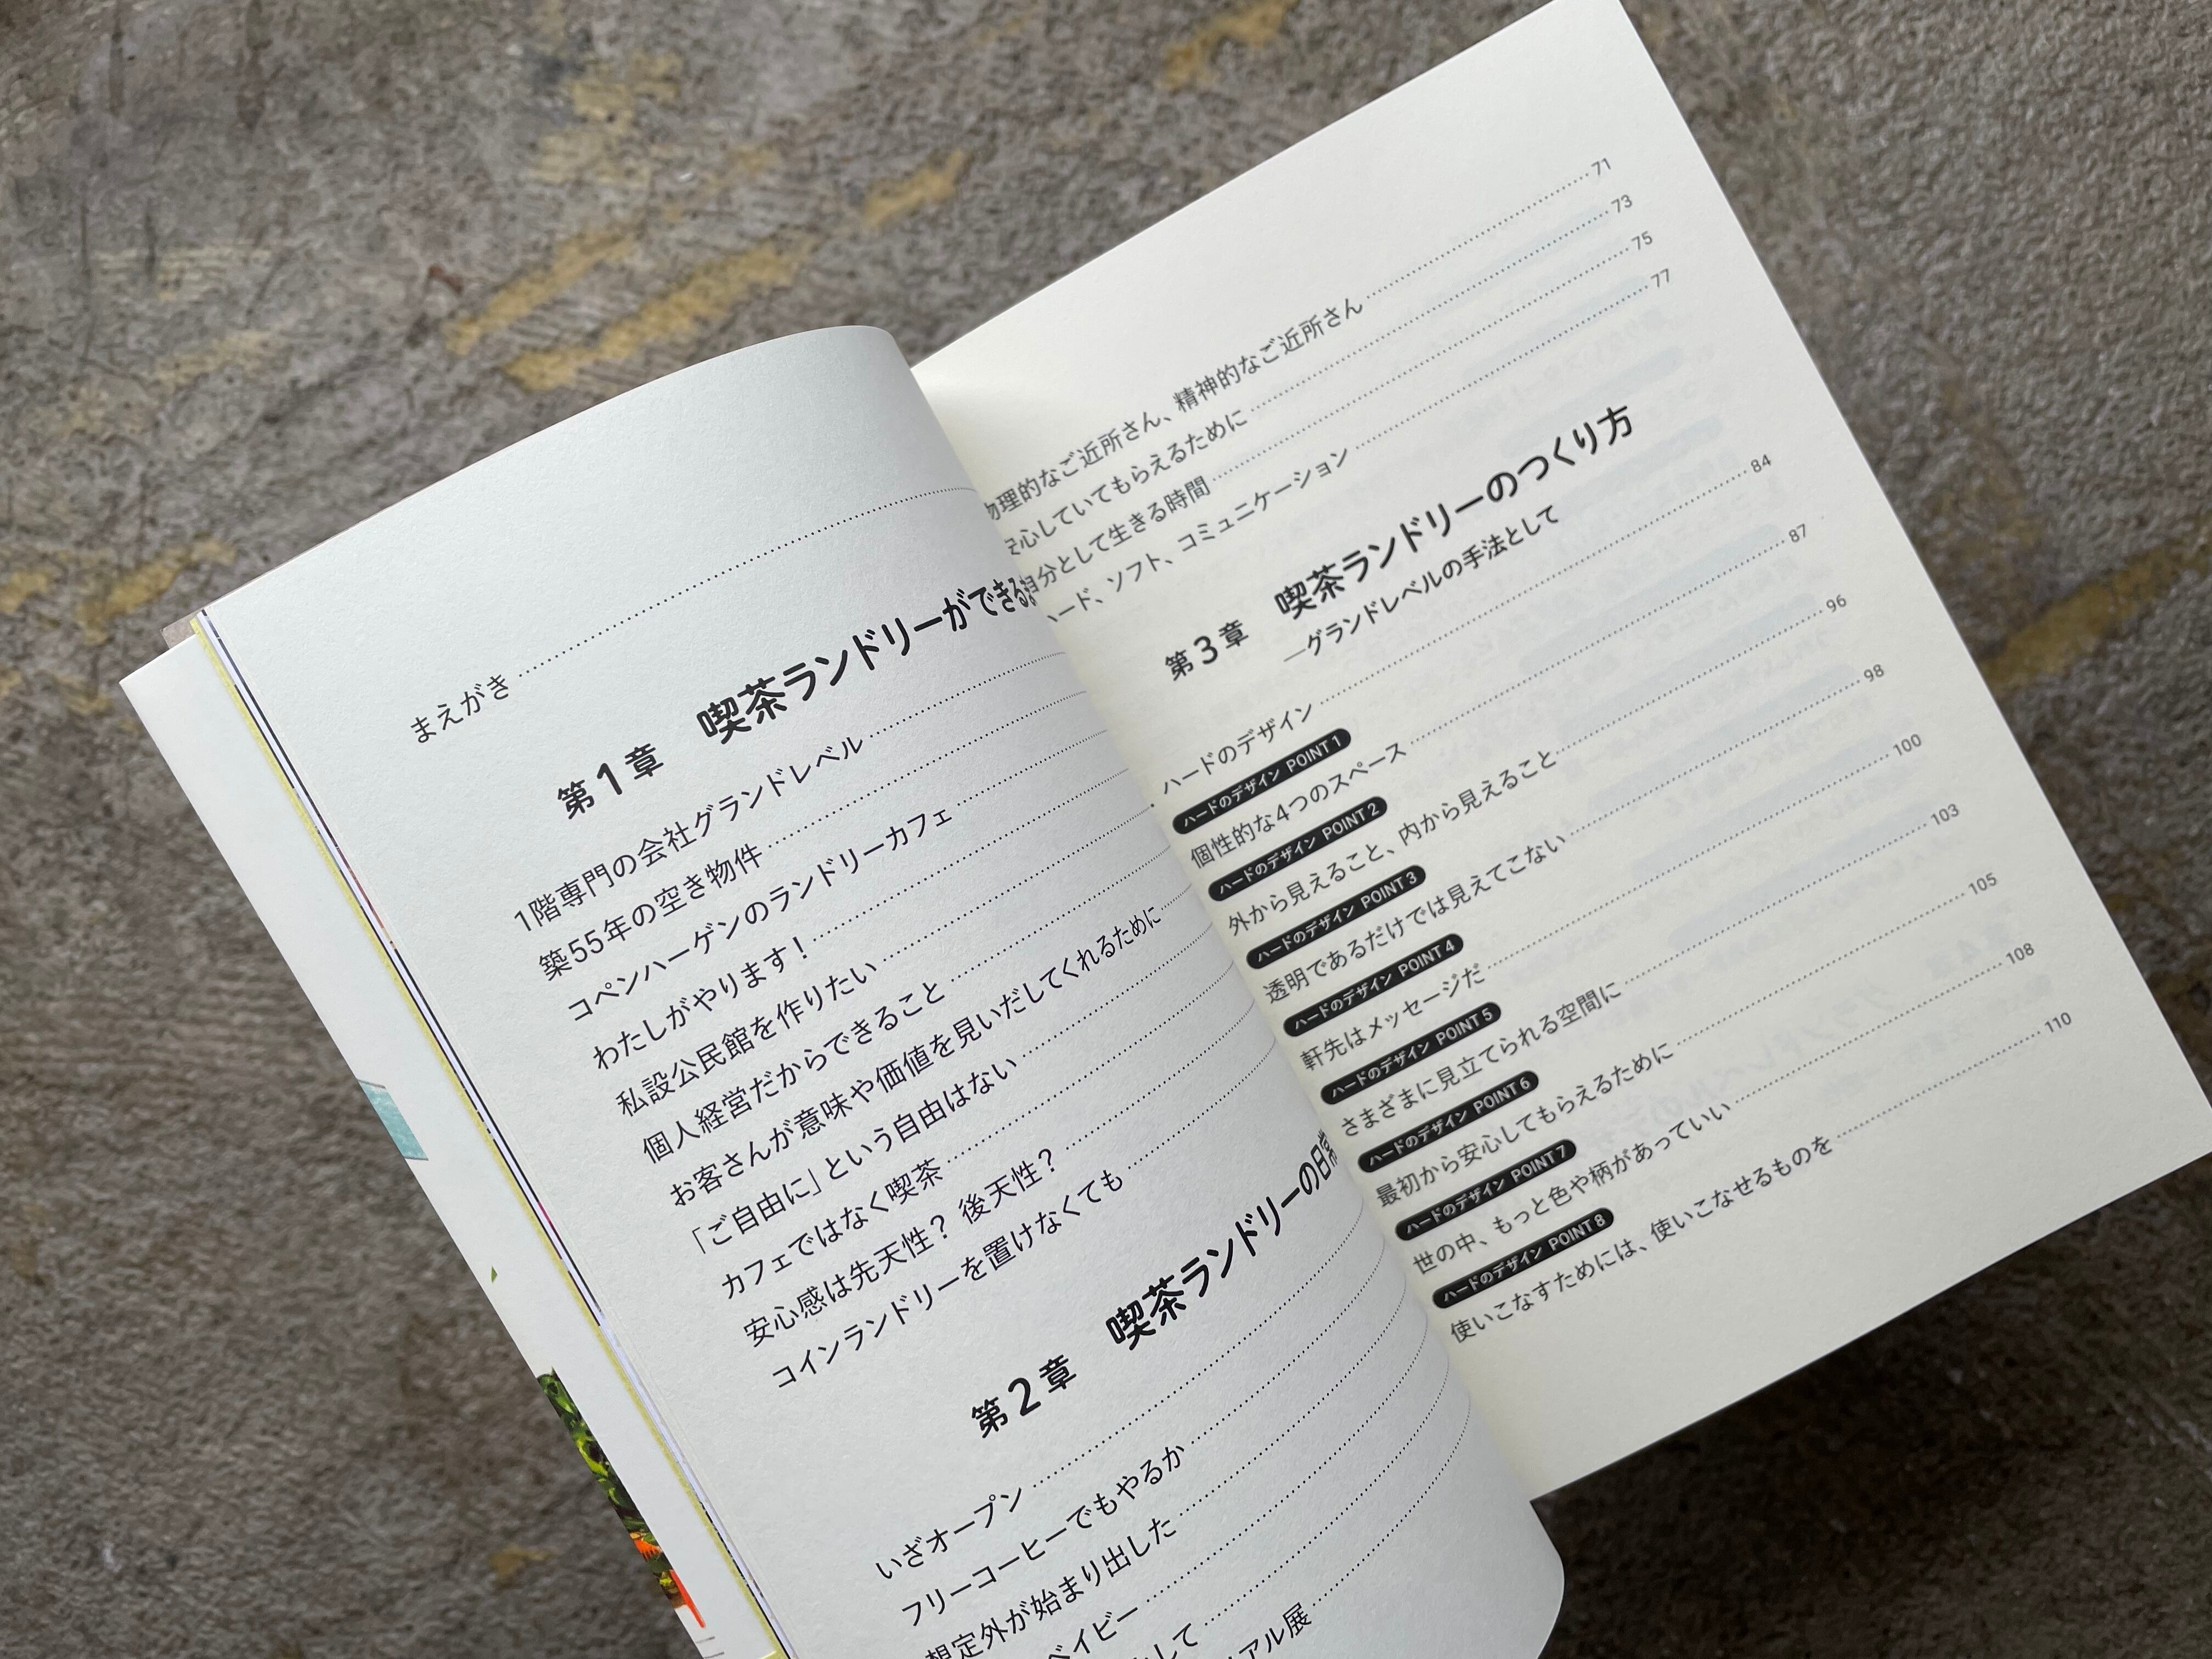 まえがき
第1章 喫茶ランドリーができる
1階専門の会社グランドレベル
築55年の空き物件
コペンハーゲンのランドリーカフェ
わたしがやります！
私設公民館を作りたい
個人経営だからできること
お客さんが意味や価値を見いだしてくれるために
「ご自由に」という自由はない
カフェではなく喫茶
安心感は先天性？ 後天性？
コインランドリーを置けなくても
第2章 喫茶ランドリーの日常
いざオープン
フリーコーヒーでもやるか
想定外が始まり出した
ベイビー
して
アル展
物理的なご近所さん、精神的なご近所さん 71
安心していてもらえるために 73
自分として生きる時間 75
ハード、ソフト、コミュニケーション 77
第3章 喫茶ランドリーのつくり方
―グランドレベルの手法として
ハードのデザイン 84
ハードのデザイン POINT 1
個性的な4つのスペース 87
ハードのデザイン POINT 2
外から見えること、内から見えること 96
ハードのデザイン POINT 3
透明であるだけでは見えてこない 98
ハードのデザイン POINT 4
軒先はメッセージだ 100
ハードのデザイン POINT 5
さまざまに見立てられる空間に 103
ハードのデザイン POINT 6
最初から安心してもらえるために 105
ハードのデザイン POINT 7
世の中、もっと色や柄があっていい 108
ハードのデザイン POINT 8
使いこなすためには、使いこなせるものを 110